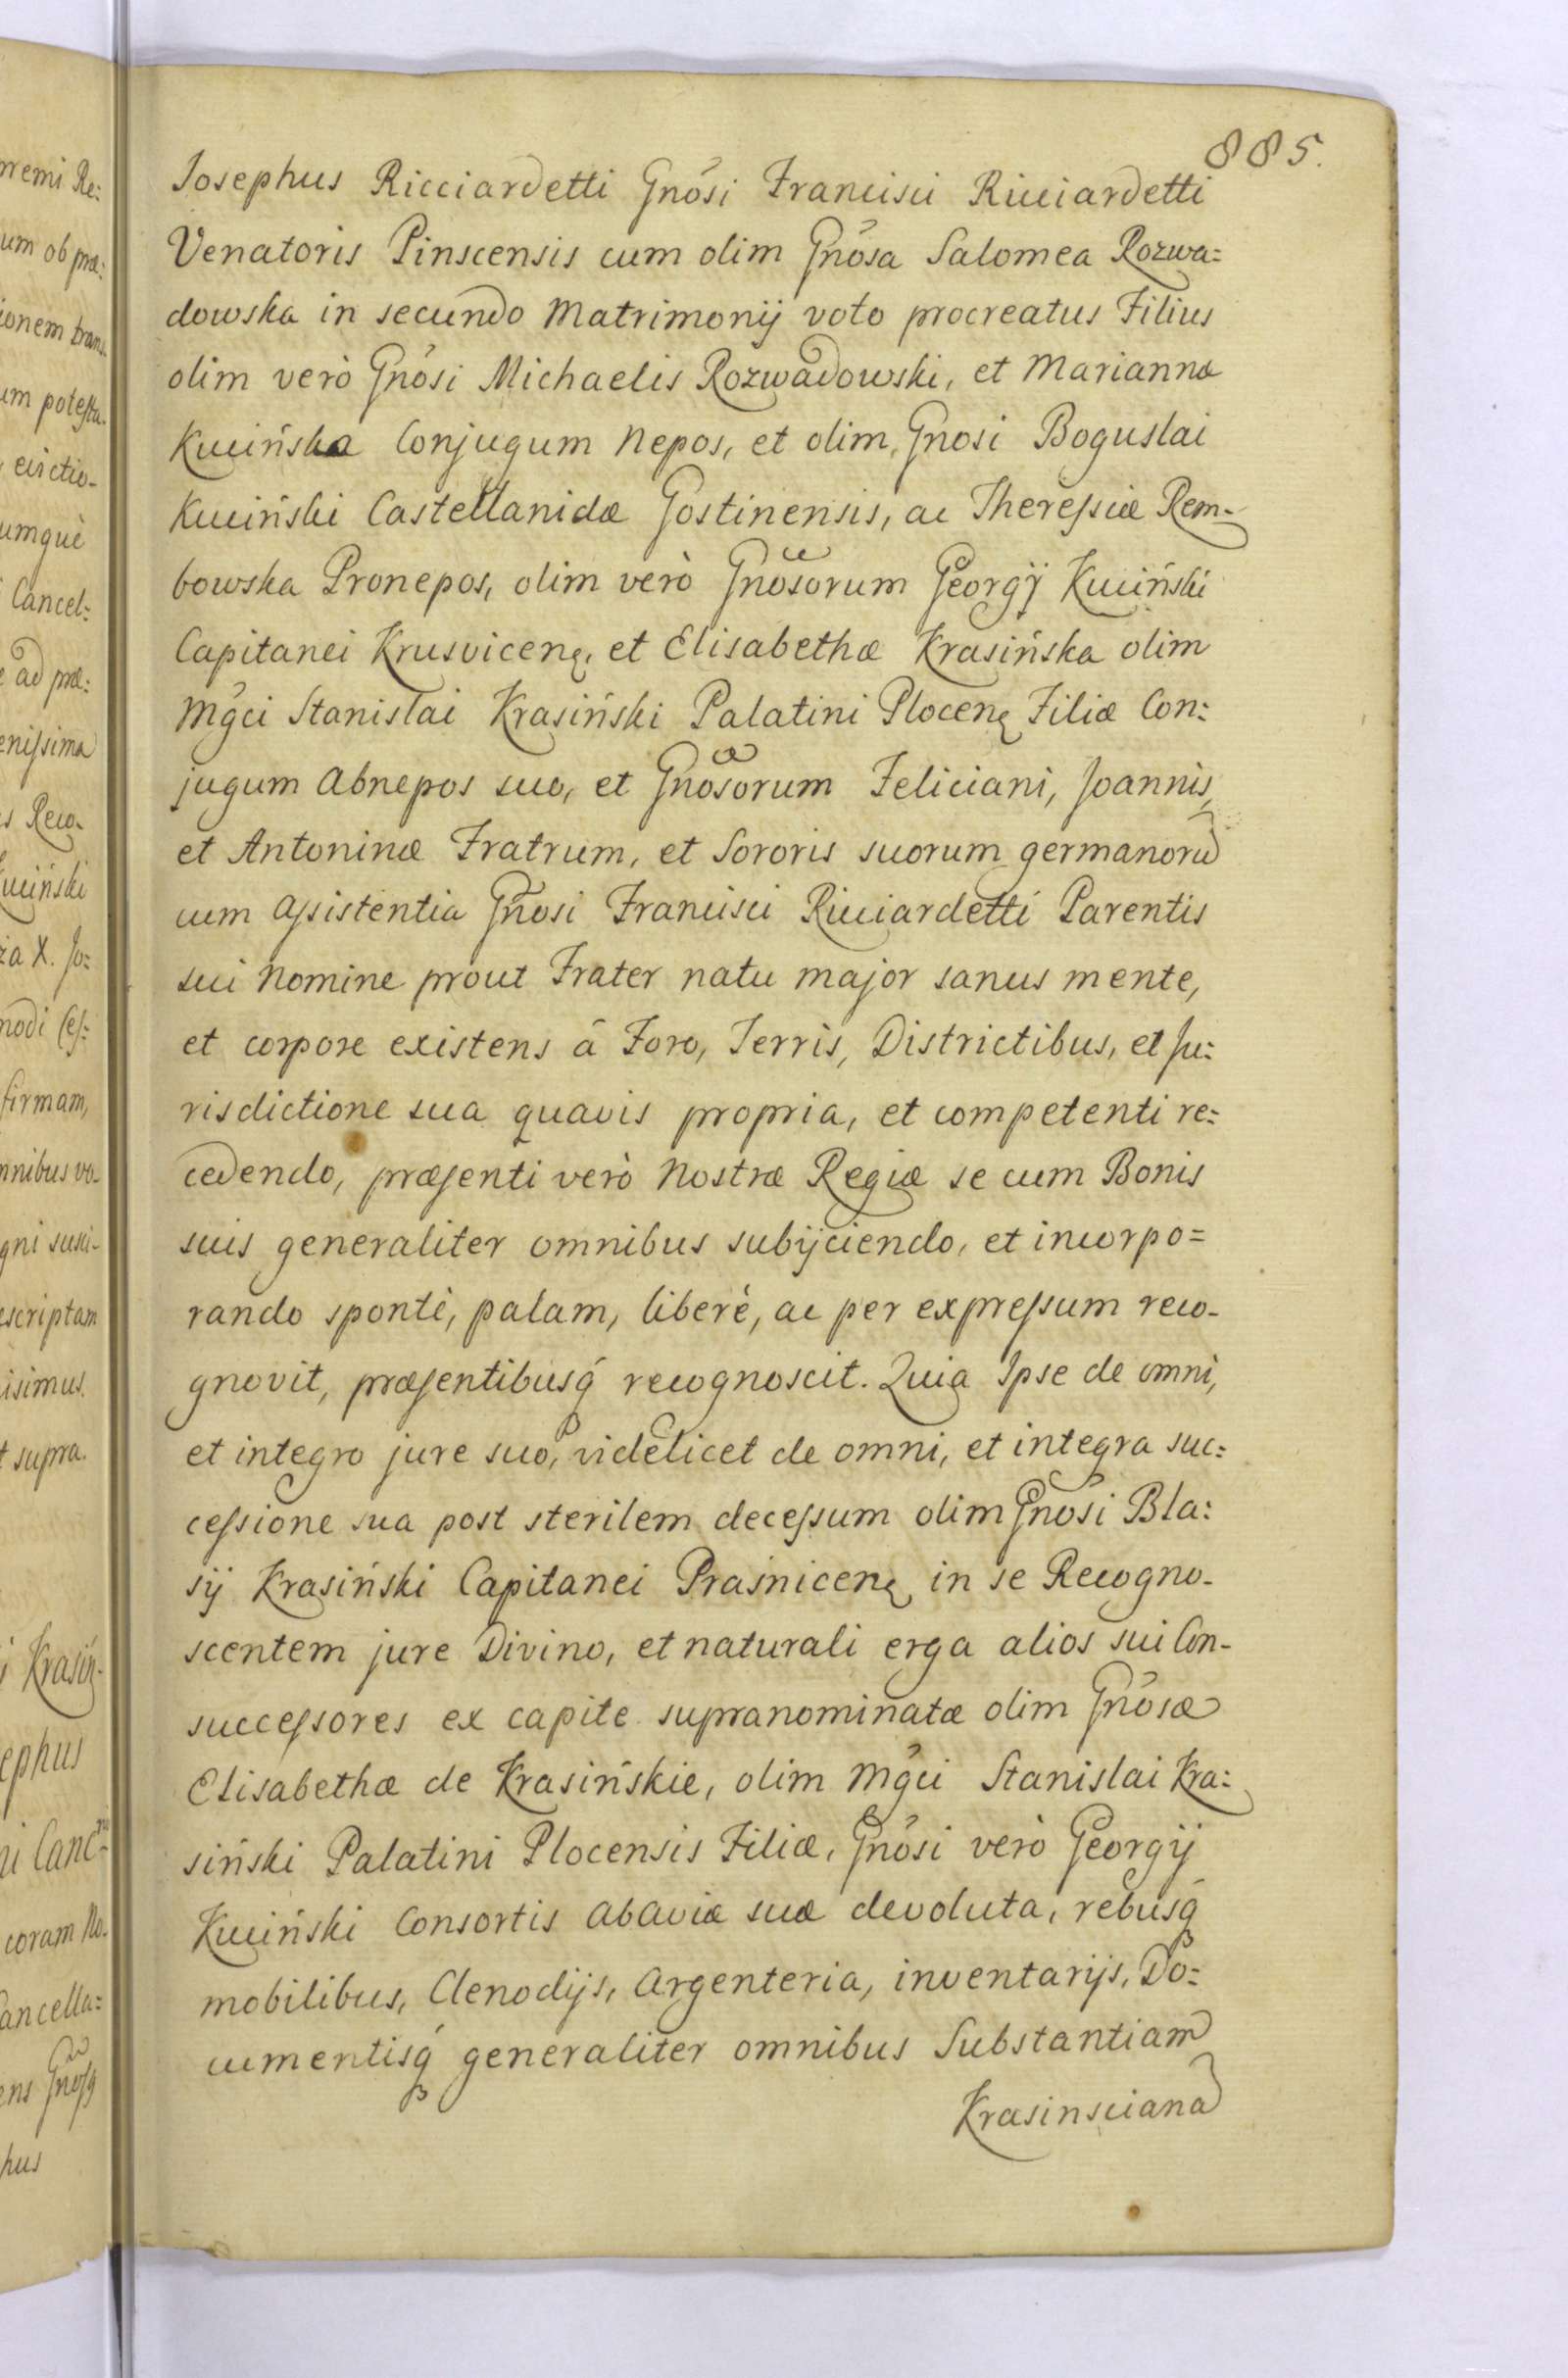 885.
Josephus Ricciardetti Gnosi Francisci Ricciardetti
Venatoris Pinscensis cum olim Gnosa Salomea Rozwa=
dowska in secundo Matrimonij voto procreatus Filius
olim verò Gnosi Michaelis Rozwadowski, et Marianna
Kucińska Conjugum Nepos, et olim Gnosi Boguslai
Kuciński Castellanidæ Gostinensis, ac Theressiæ Rem-
bowska Pronepos, olim verò Gnosorum Georgij Kuciński
Capitanei Krusvicenę, et Elisabethæ Krasińska olim
Mgci Stanislai Krasiński Palatini Plocenę Filiæ Con:
jugum Abnepos suo, et Gnosorum Feliciani, Joannis,
et Antoninæ Fratrum, et Sororis suorum germanorū
cum assistentia Gnosi Francisci Ricciardetti Parentis
sui Nomine prout Frater natu major sanus mente,
et corpore existens â Foro, Terris, Districtibus, et Ju:
risdictione sua quavis propria, et competenti re:
cedendo, præsenti verò Nostræ Regiæ se cum Bonis
suis generaliter omnibus subijciendo, et incorpo=
rando spontè, palam, liberè, ac per expressum reco-
gnovit, præsentibusq́ recognoscit. Quia Ipse de omni,
et integro jure suo, videlicet de omni, et integra suc:
cessione sua post sterilem decessum olim Gnosi Bla:
sij Krasiński Capitanei Praśnicenę in se Recogno-
scentem jure Divino, et naturali erga alios sui Con-
successores ex capite supranominatæ olim Gnosæ
Elisabethæ de Krasińskie, olim Mgci Stanislai Kra:
siński Palatini Plocensis Filiæ, Gnosi verò Georgij
Kuciński Consortis abaviæ suæ devoluta, rebusq́
mobilibus, Clenodijs, Argenteria, inventarijs, Do:
cumentisq́ generaliter omnibus Substantiam
Krasinsciana